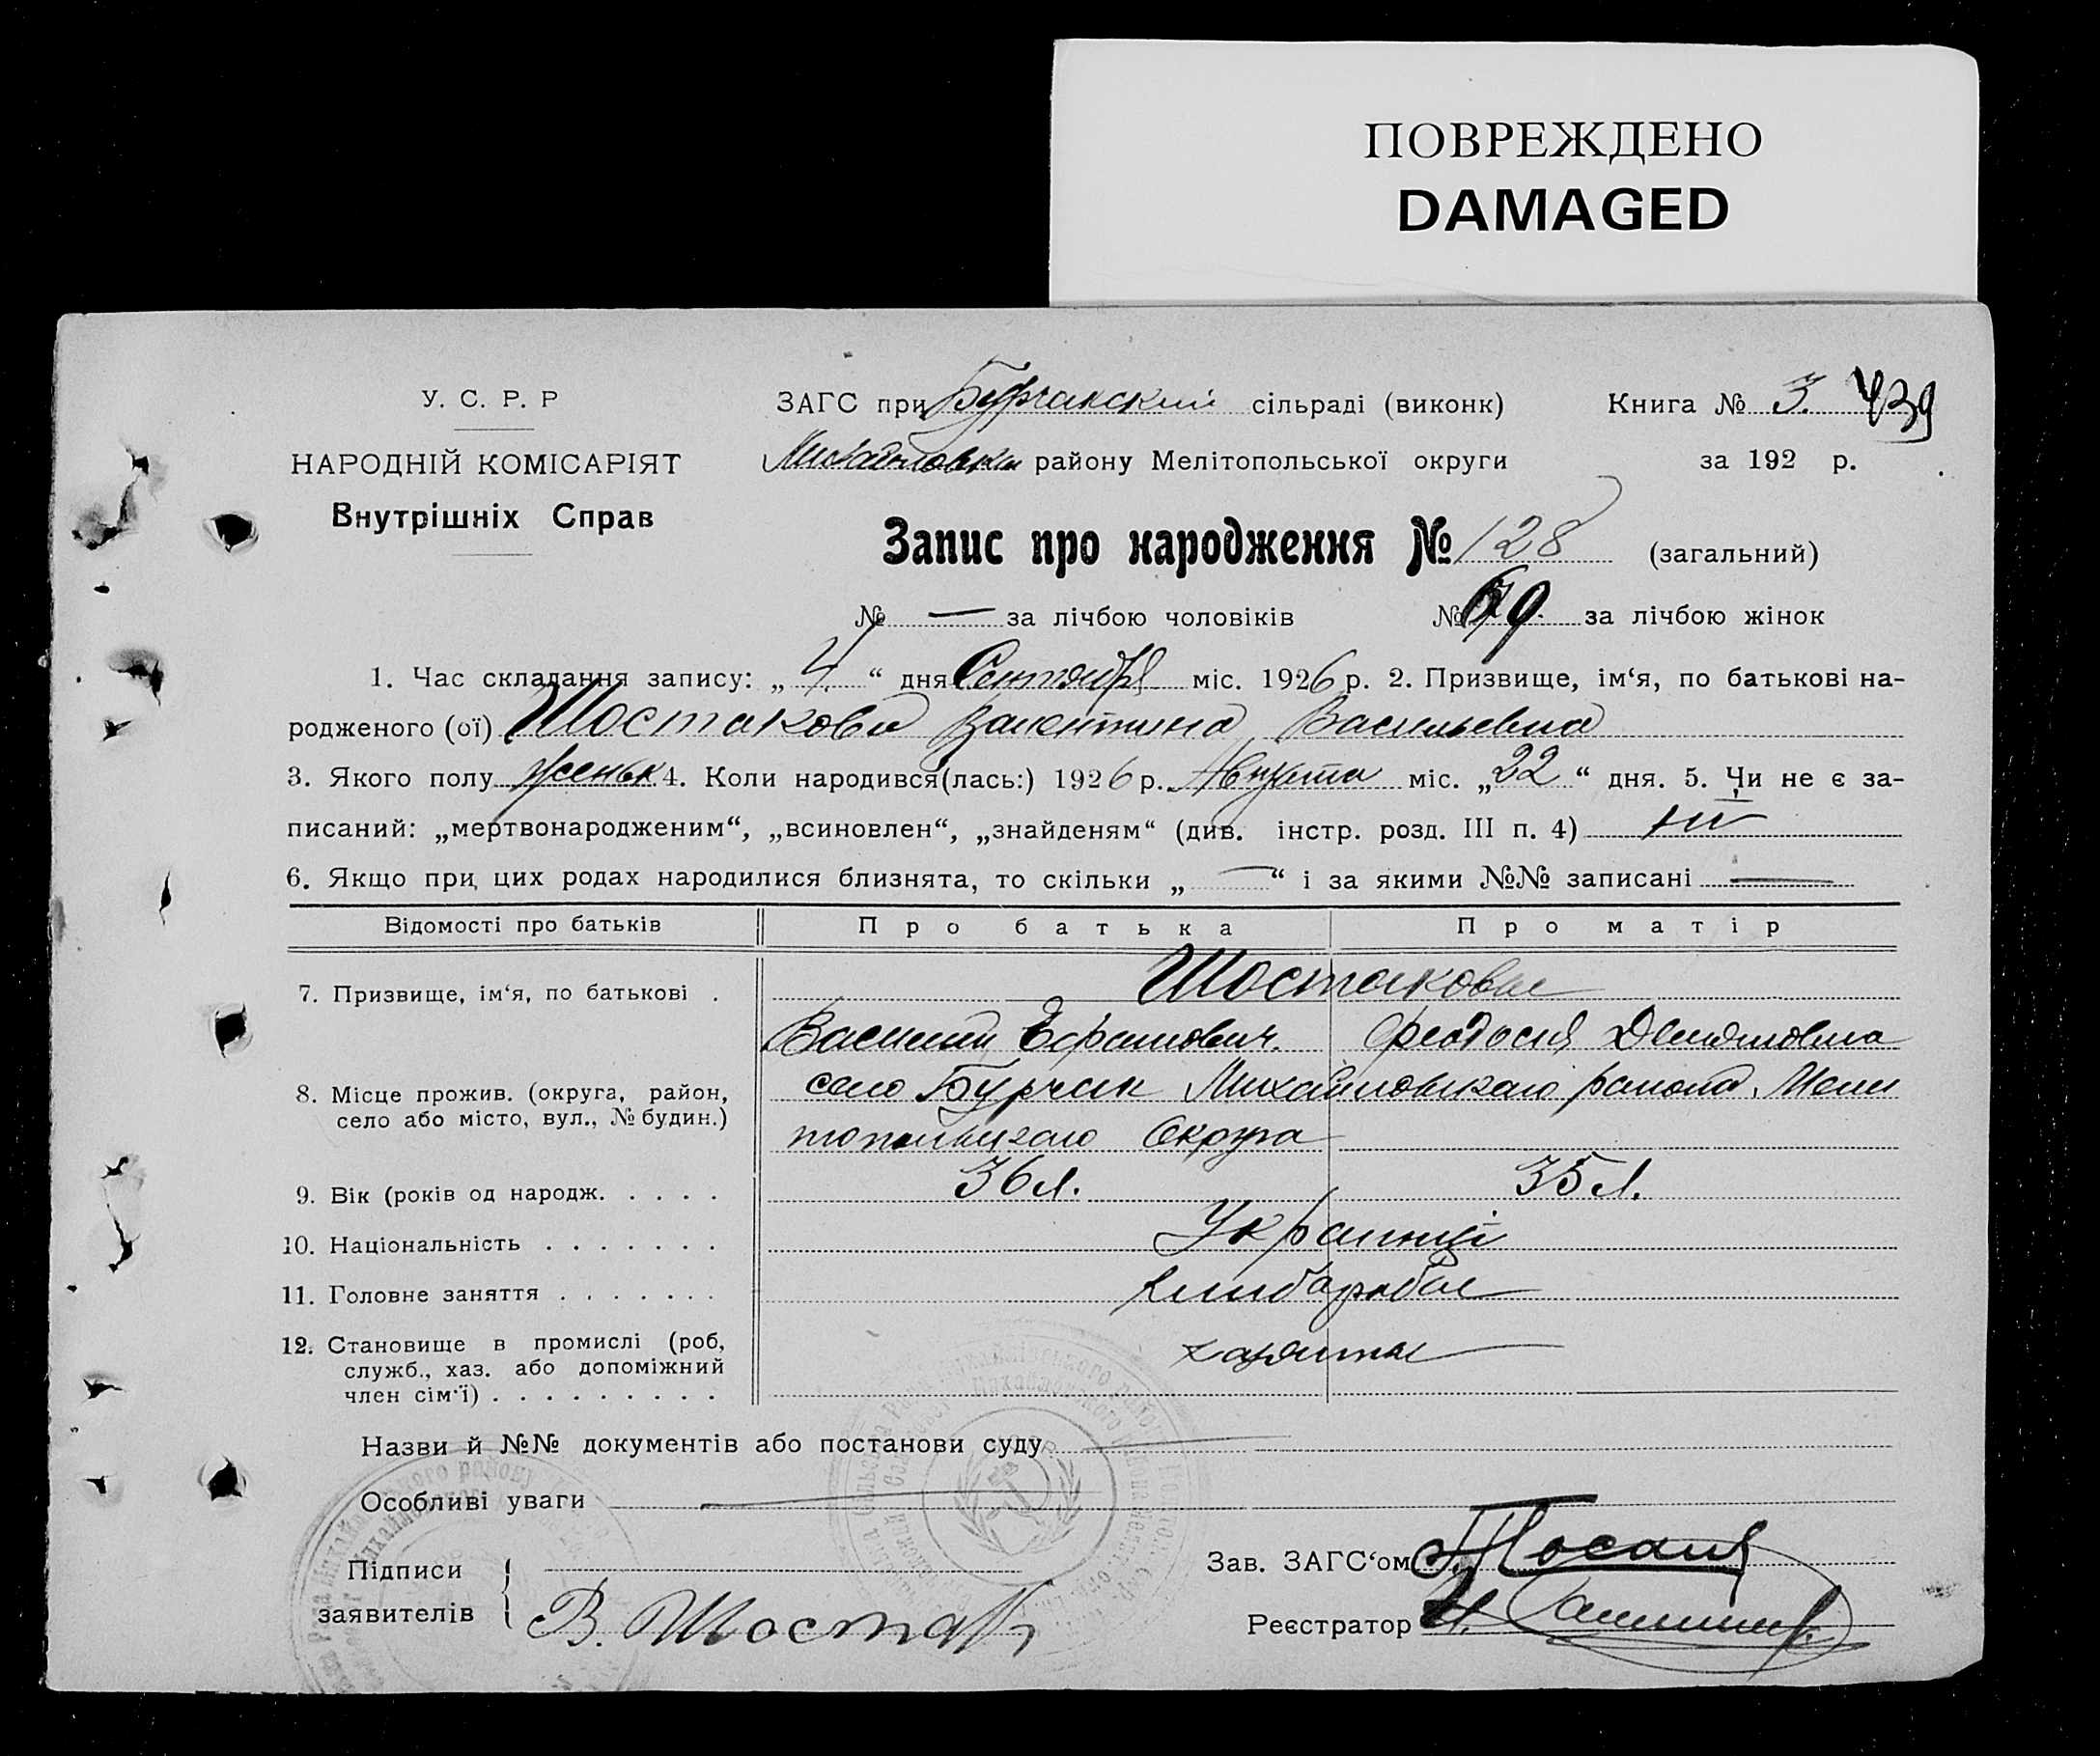 ПОВРЕЖДЕНО
DAMAGED
У. С. Р. Р
НАРОДНІЙ КОМІСАРІЯТ
Внутрішніх Справ
ЗАГС при Бурчакский сільраді (виконк)
Книга № 3. 439
Михайловки району Мелітопольської округи
за 192 р.
Запис про народження № 128 (загальний)
№ — за лічбою чоловіків № 69. за лічбою жінок
1. Час складання запису: „4“ дня Сентября міс. 1926 р. 2. Призвище, ім‘я, по батькові на-
родженого (ої) Шостакова Валентина Васильевна
3. Якого полу женск 4. Коли народився(лась:) 1926 р. Августа міс. „22“ дня. 5. Чи не є за-
писаний: „мертвонародженим“, „всиновлен“, „знайденям“ (див. інстр. розд. III п. 4) ні
6. Якщо при цих родах народилися близнята, то скільки „—“ і за якими №№ записані —
Відомості про батьків
Про батька
Про матір
7. Призвище, ім‘я, по батькові .
Шостаковы
Василий Ефимович.
Феодосия Демяновна
8. Місце прожив. (округа, район,
село або місто, вул., № будин.)
село Бурчак Михайловскаго района, Мели
топольскаго Округа
9. Вік (років од народж. . . . .
36 л.
35 л.
10. Національність . . . . . . .
Украинці
11. Головне заняття . . . . . . .
хлибаробы
12. Становище в промислі (роб,
служб., хаз. або допоміжний
член сім‘ї) . . . . . . . . .
хазяины
Назви й №№ документів або постанови суду —
Особливі уваги —
Підписи
заявителів
В. Шостак
Зав. ЗАГС‘ом
Реєстратор